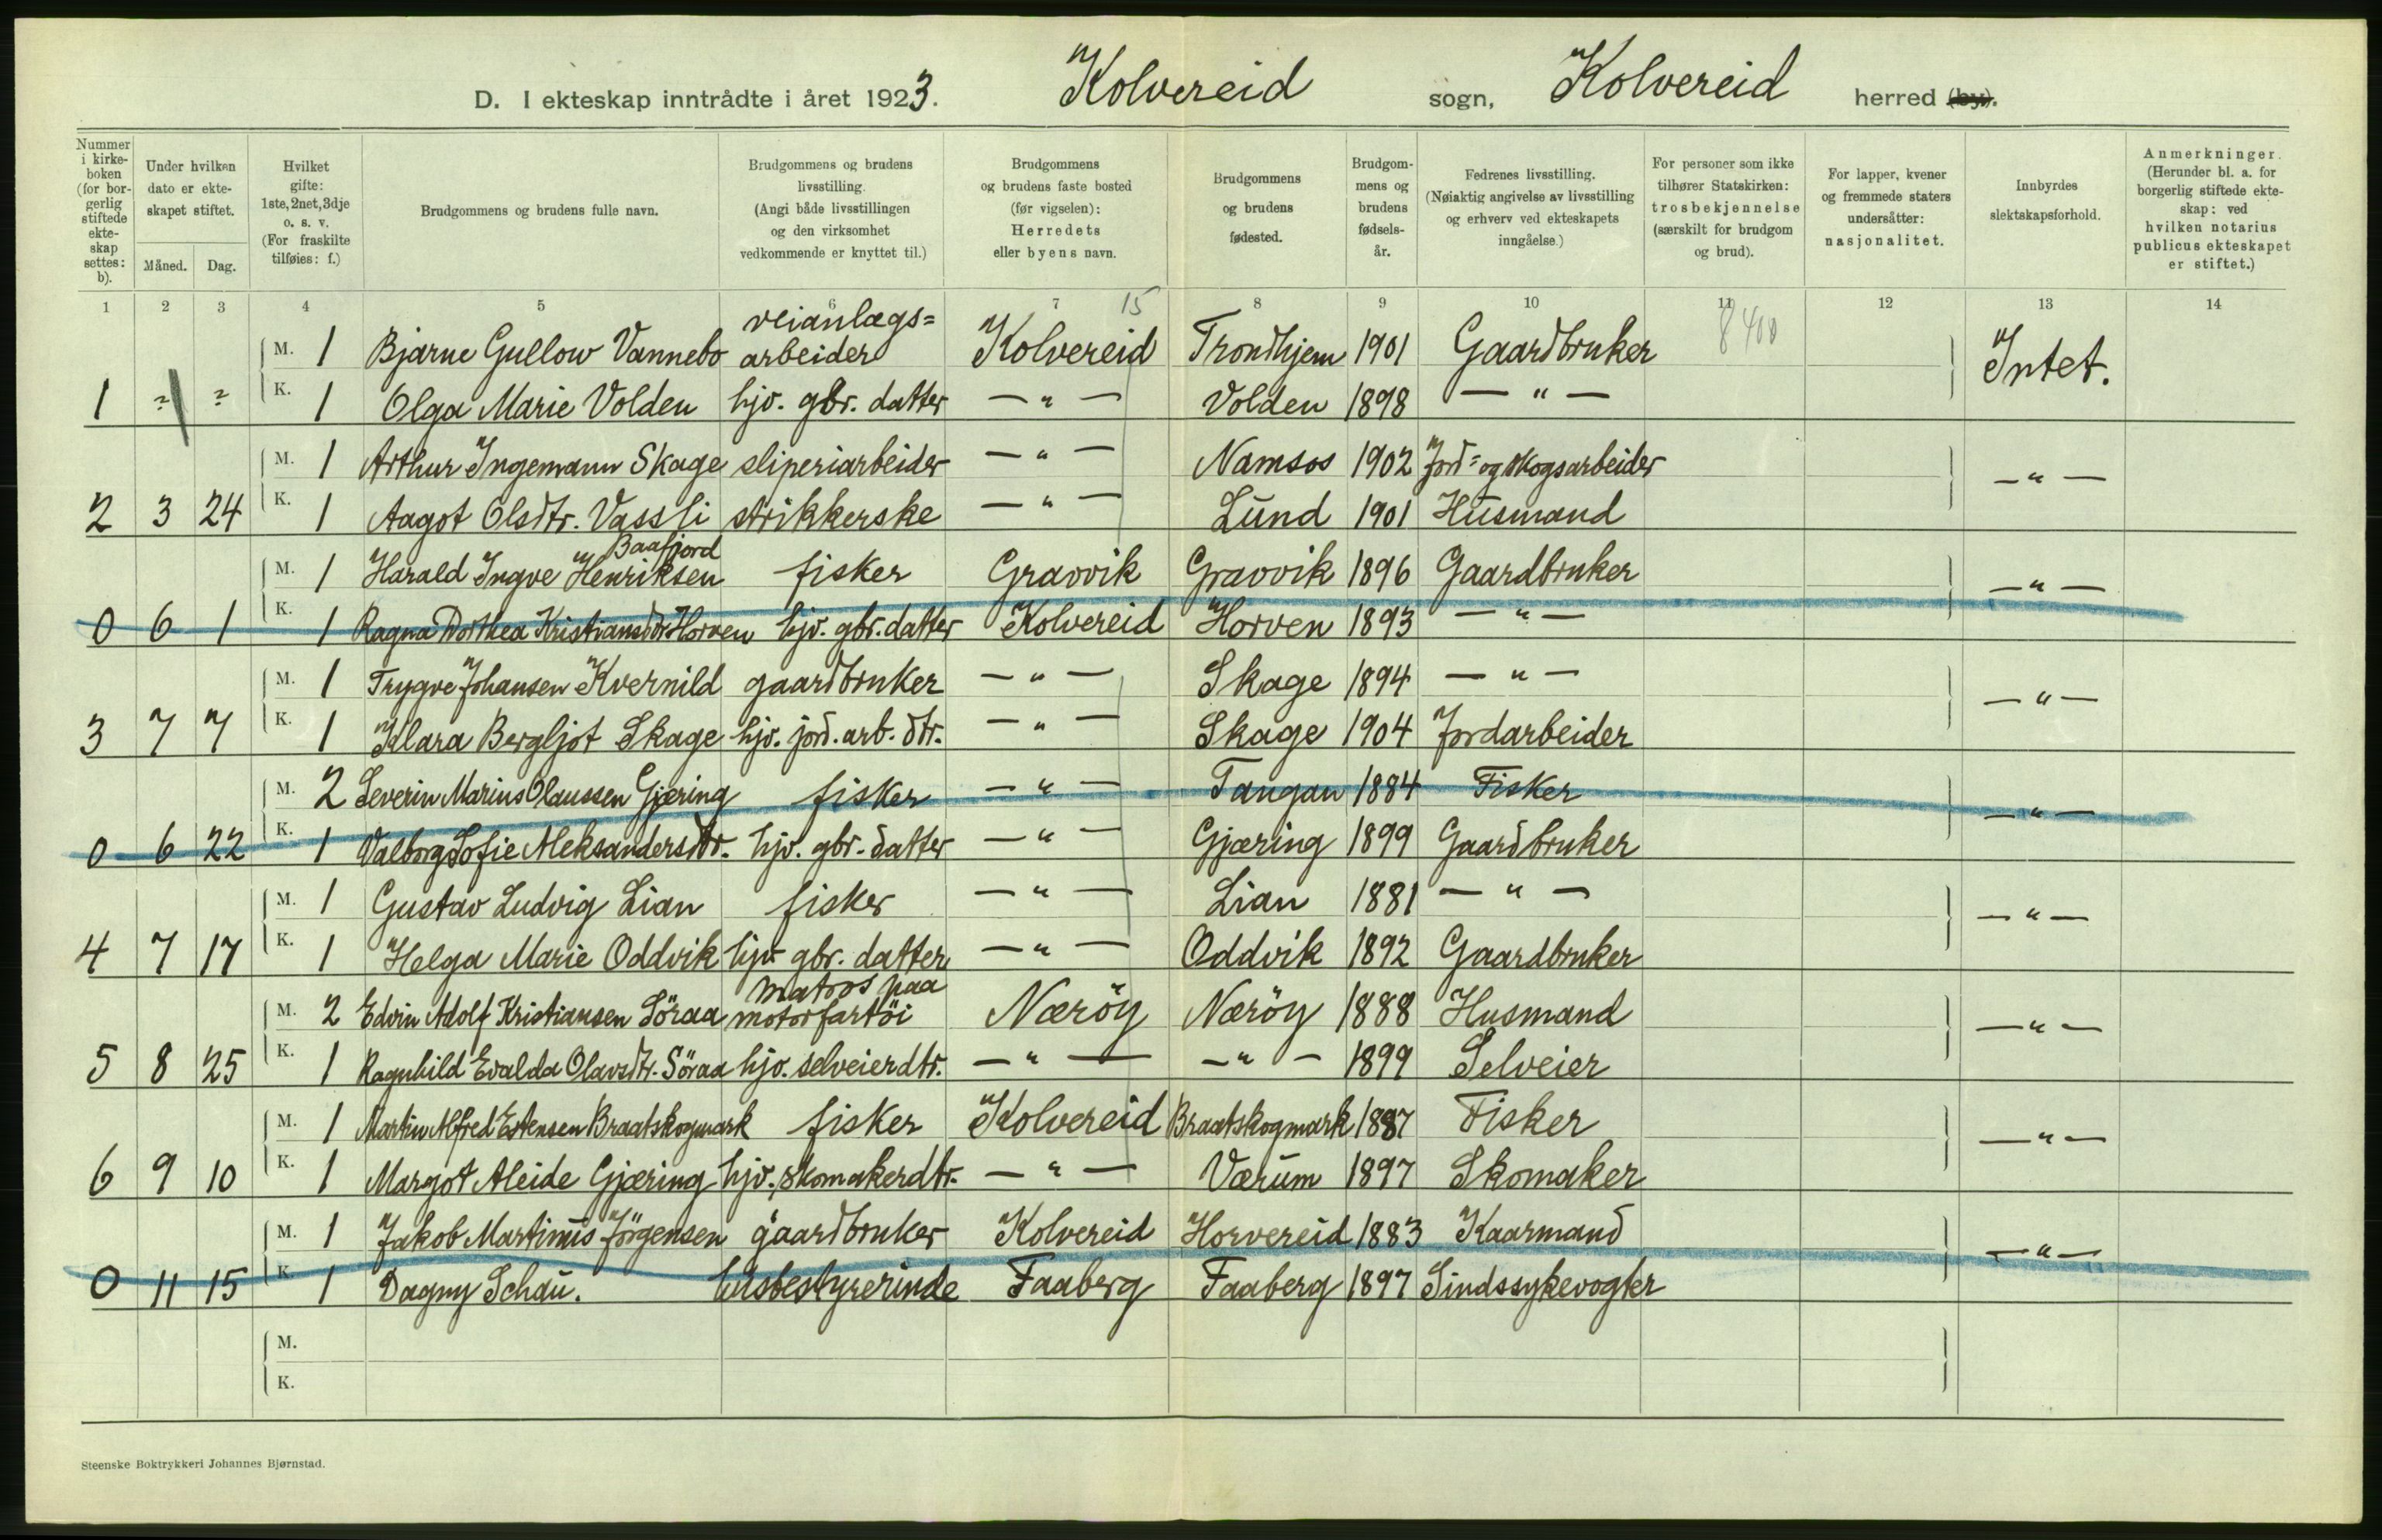 D. I ekteskap inntrådte i året 1923. Kolvereid sogn, Kolvereid herred (by).
Nummer i kirkeboken (for borgerlig stiftede ekteskap settes: b).
Under hvilken dato er ekteskapet stiftet.
Måned. Dag.
Hvilket gifte: 1ste, 2net, 3dje o. s. v. (For fraskilte tilføies: f.)
Brudgommens og brudens fulle navn.
Brudgommens og brudens livsstilling. (Angi både livsstillingen og den virksomhet vedkommende er knyttet til.)
Brudgommens og brudens faste bosted (før vigselen): Herredets eller byens navn.
Brudgommens og brudens fødested.
Brudgommens og brudens fødselsår.
Fedrenes livsstilling. (Nøiaktig angivelse av livsstilling og erhverv ved ekteskapets inngåelse.)
For personer som ikke tilhører Statskirken: trosbekjennelse (særskilt for brudgom og brud).
For lapper, kvener og fremmede staters undersåtter: nasjonalitet.
Innbyrdes slektskapsforhold.
Anmerkninger. (Herunder bl. a. for borgerlig stiftede ekteskap: ved hvilken notarius publicus ekteskapet er stiftet.)
1 2 3 4 5 6 7 8 9 10 11 12 13 14
15
veianlægs=
M. 1 Bjarne Gullow Vannebo arbeider Kolvereid Trondhjem 1901 Gaardbruker 8400 Intet.
1 ? ? K. 1 Olga Marie Volden hjv. gbr. datter — " — Volden 1898 — " —
M. 1 Arthur Ingemann Skage sliperiarbeider — " — Namsos 1902 Jord= og skogsarbeider — " —
2 3 24 K. 1 Aagot Olsdtr. Vassli strikkerske — " — Lund 1901 Husmand
Baafjord
M. 1 Harald Ingve Henriksen fisker Gravvik Gravvik 1896 Gaardbruker — " —
0 6 1 K. 1 Ragna Dorthea Kristiansdtr Horven hjv. gbr. datter Kolvereid Horven 1893 — " —
M. 1 Trygve Johansen Kvernild gaardbruker — " — Skage 1894 — " — — " —
3 7 7 K. 1 Klara Bergljot Skage hjv. jord. arb. dtr. — " — Skage 1904 Jordarbeider
M. 2 Severin Marius Olaussen Gjæring fisker — " — Tangan 1884 Fisker — " —
0 6 22 K. 1 Valborg Sofie Aleksandersdtr. hjv. gbr. datter — " — Gjæring 1899 Gaardbruker
M. 1 Gustav Ludvig Lian fisker — " — Lian 1881 — " — — " —
4 7 17 K. 1 Helga Marie Oddvik hjv. gbr. datter — " — Oddvik 1892 Gaardbruker
matros paa
M. 2 Edvin Adolf Kristiansen Söraa motorfartöi Næröy Næröy 1888 Husmand — " —
5 8 25 K. 1 Ragnhild Evalda Olavsdtr. Söraa hjv. selveierdtr. — " — — " — 1899 Selveier
M. 1 Martin Alfred Estensen Braatskogmark fisker Kolvereid Braatskogmark 1887 Fisker — " —
6 9 10 K. 1 Margot Aleide Gjæring hjv. skomakerdtr. — " — Værum 1897 Skomaker
M. 1 Jakob Martinus Jörgensen gaardbruker Kolvereid Horvereid 1883 Kaarmand — " —
0 11 15 K. 1 Dagny Schau. husbestyrerinde Faaberg Faaberg 1897 Sindssykevogter
M.
K.
Steenske Boktrykkeri Johannes Bjørnstad.